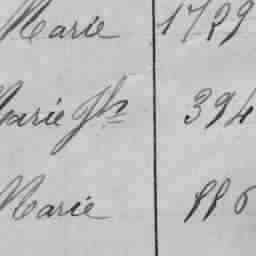 Marie 1789
Marie Jh 394
Marie 886